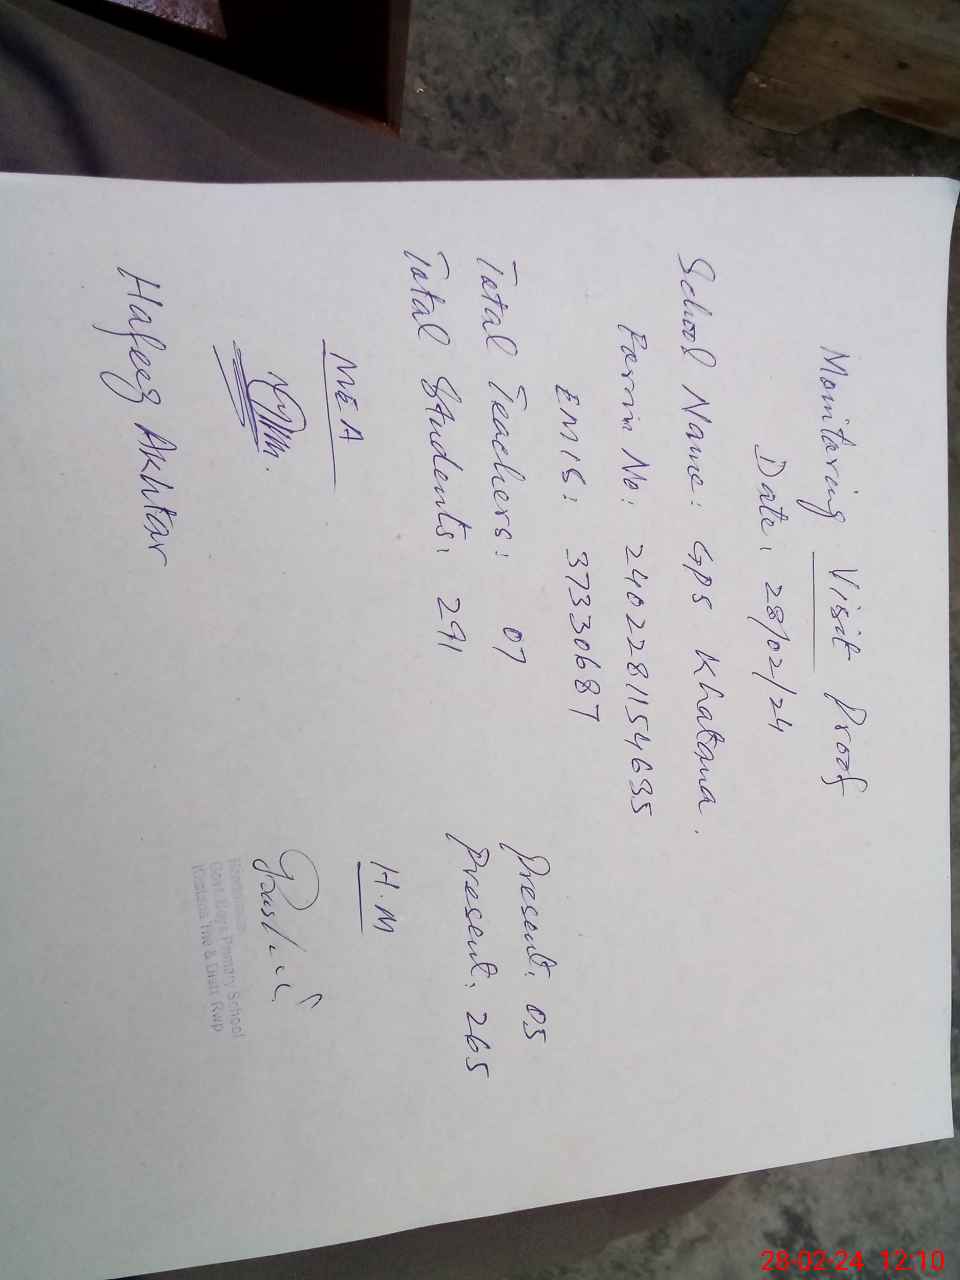 Monitoring Visit Proof
Date: 28/02/24
School Name: GPS Khatana.
Farm No: 2402281154635
EMIS: 37330687
Total Teachers: 07 Present: 05
Total Students: 291 Present: 265
MEA H.M
Hafeez Akhtar
Govt. Boys Primary School
Khatana The & Distt Rwp
28-02-24 12:10